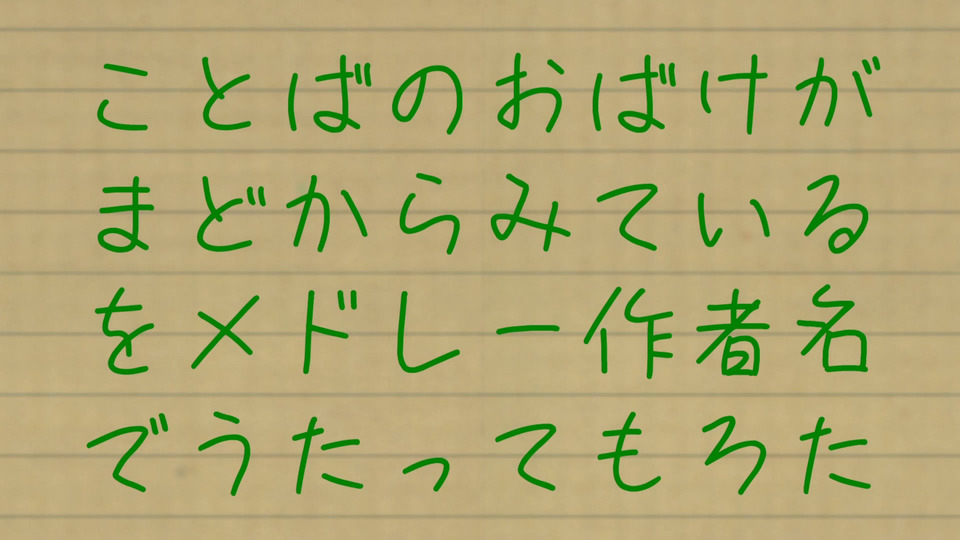 ことばのおばけが
まどからみている
をメドレー作者名
でうたってもろた